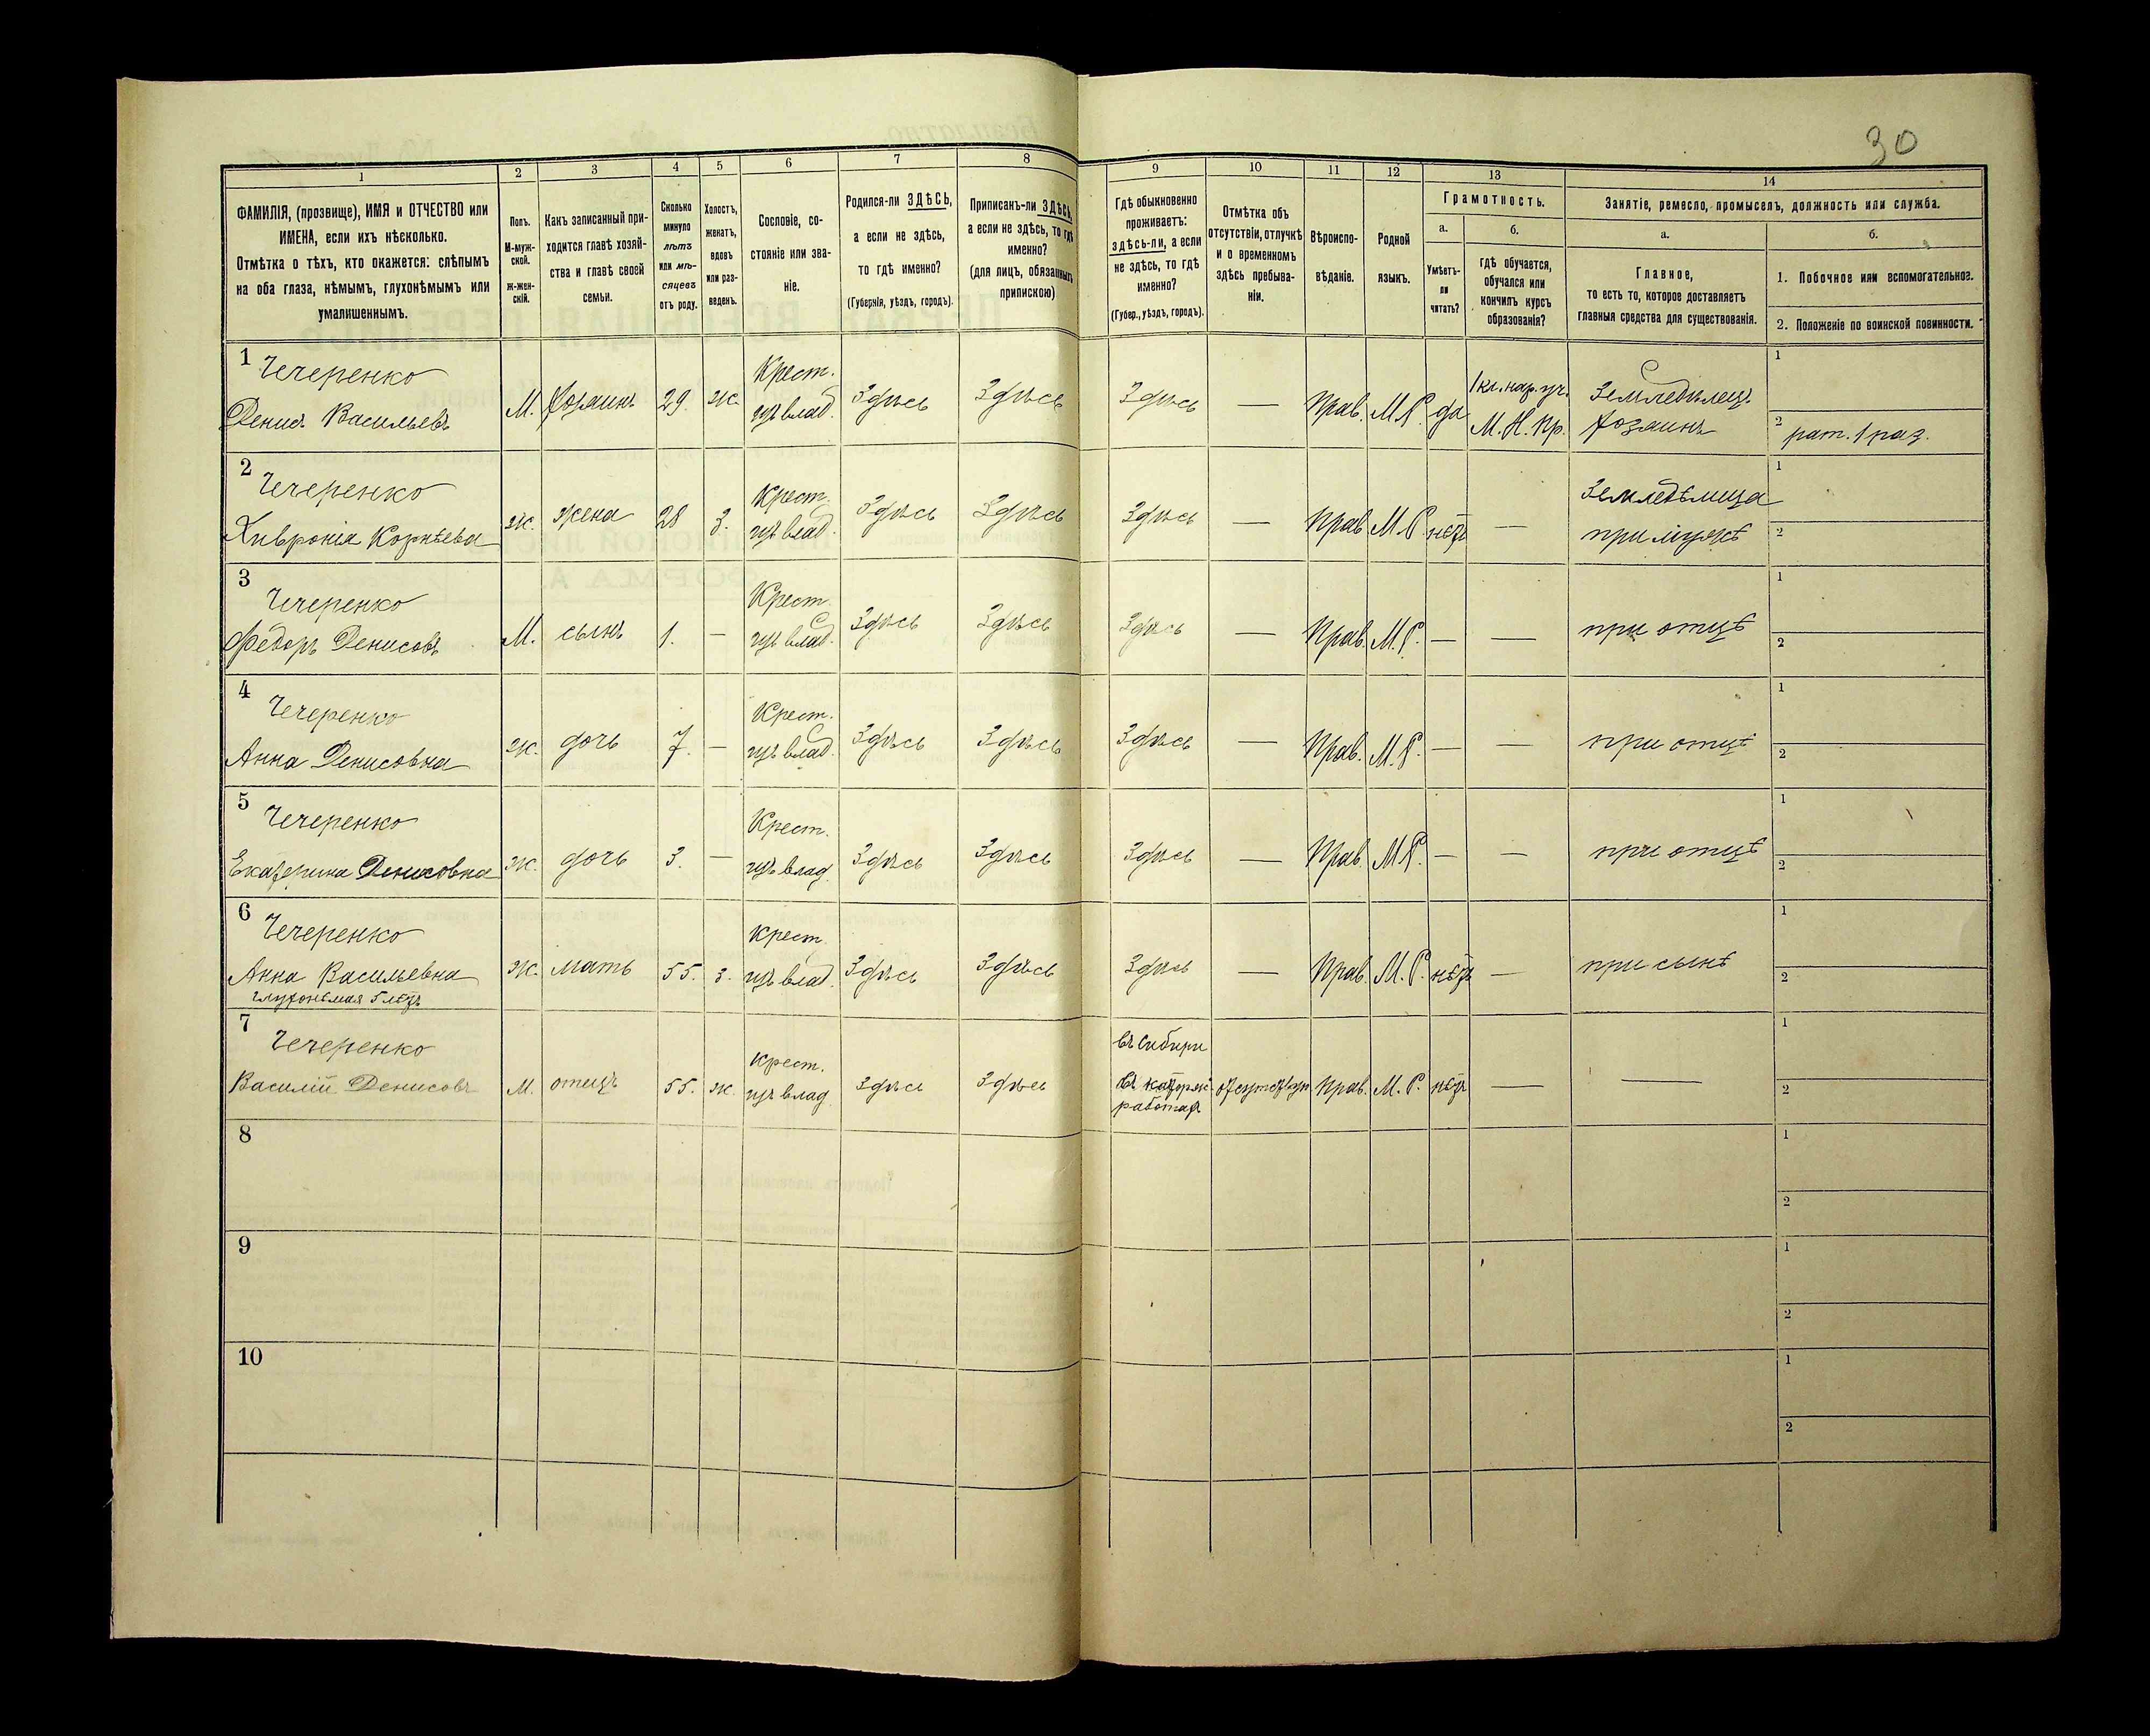 30
1 2 3 4 5 6 7 8 9 10 11 12 13 14
ФАМИЛІЯ, (прозвище), ИМЯ и ОТЧЕСТВО или
ИМЕНА, если ихъ нѣсколько.
Отмѣтка о тѣхъ, кто окажется: слѣпымъ
на оба глаза, нѣмымъ, глухонѣмымъ или
умалишеннымъ.
Полъ.
М-муж-
ской.
Ж-жен-
скій.
Какъ записанный при-
ходится главѣ хозяй-
ства и главѣ своей
семьи.
Сколько
минуло
лѣтъ
или мѣ-
сяцевъ
отъ роду.
Холостъ,
женатъ,
вдовъ
или раз-
веденъ.
Сословіе, со-
стояніе или зва-
ніе.
Родился-ли ЗДѢСЬ,
а если не здѣсь,
то гдѣ именно?
(Губернія, уѣздъ, городъ).
Приписанъ-ли ЗДѢСЬ,
а если не здѣсь, то гдѣ
именно?
(для лицъ, обязанныхъ
припискою)
Гдѣ обыкновенно
проживаетъ:
здѣсь-ли, а если
не здѣсь, то гдѣ
именно?
(Губер., уѣздъ, городъ).
Отмѣтка объ
отсутствіи, отлучкѣ
и о временномъ
здѣсь пребыва-
ніи.
Вѣроиспо-
вѣданіе.
Родной
языкъ.
Грамотность.
а.
Умѣетъ-
ли
читать?
б.
гдѣ обучается,
обучался или
кончилъ курсъ
образованія?
Занятіе, ремесло, промыселъ, должность или служба.
а.
Главное,
то есть то, которое доставляетъ
главныя средства для существованія.
б.
1. Побочное или вспомогательное.
2. Положеніе по воинской повинности.
1 Чечеренко Крест. 1 кл. нар. уч. Земледѣлец. 1
Денисъ Васильевъ М. хозяинъ 29. ж. изъ влад. Здѣсь Здѣсь Здѣсь — Прав. М.Р. да М. Н. Пр. хозяинъ 2 рат. 1 раз.
2 Чечеренко Крест. Земледѣлица 1
Хивронія Корнѣева ж. жена 28 З. изъ влад. Здѣсь Здѣсь Здѣсь — Прав. М.Р. нѣтъ — при мужѣ 2
3 Чечеренко Крест. 1
Федоръ Денисовъ М. сынъ 1. — изъ влад. Здѣсь Здѣсь Здѣсь — Прав. М.Р. — — при отцѣ 2
4 Чечеренко Крест. 1
Анна Денисовна ж. дочь 7. — изъ влад. Здѣсь Здѣсь Здѣсь — Прав. М.Р. — — при отцѣ 2
5 Чечеренко Крест. 1
Екатерина Денисовна ж. дочь 3. — изъ влад. Здѣсь Здѣсь Здѣсь — Прав. М.Р. — — при отцѣ 2
6 Чечеренко Крест. 1
Анна Васильевна ж. мать 55. з. изъ влад. Здѣсь Здѣсь Здѣсь — Прав. М.Р. нѣтъ — при сынѣ 2
глухонѣмая 5 лѣтъ
7 Чечеренко Крест. въ Сибири 1
Василій Денисовъ М. отецъ 55. ж. изъ влад. Здѣсь Здѣсь въ каторж. Прав. М.Р. нѣтъ — — 2
работах
8 1
2
9 1
2
10 1
2